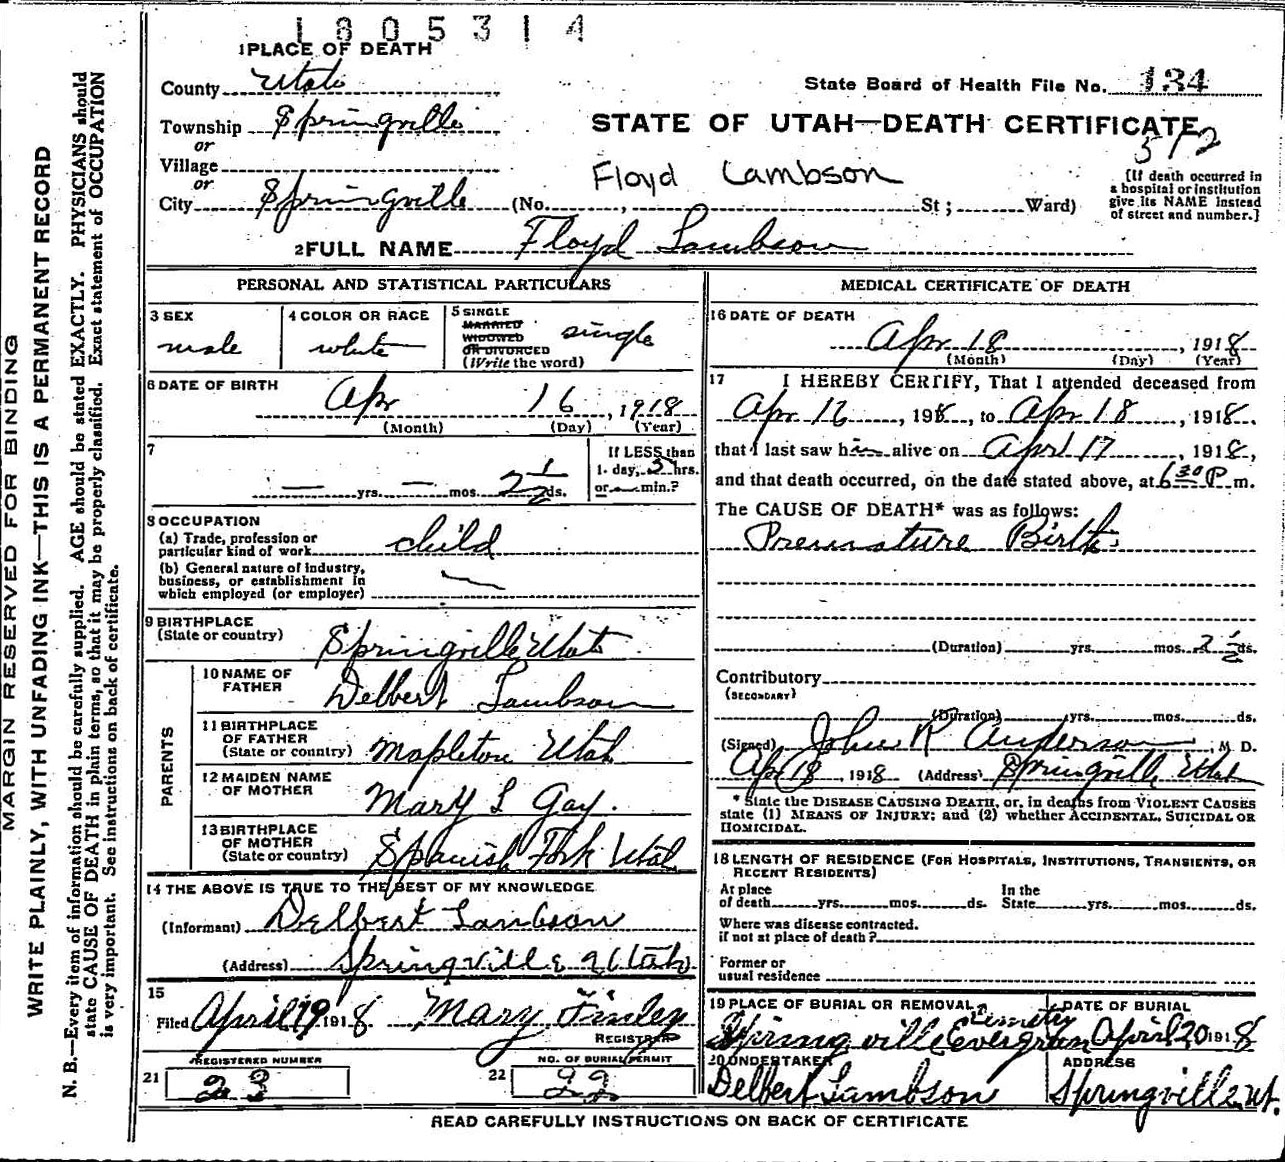 1805314
1 PLACE OF DEATH
County Utah
State Board of Health File No. 134
Township Springville
STATE OF UTAH—DEATH CERTIFICATE
512
or
Village
or
Floyd Lambson
City Springville (No. , St ; Ward)
[If death occurred in a hospital or institution give its NAME instead of street and number.]
2 FULL NAME Floyd Lambson
PERSONAL AND STATISTICAL PARTICULARS
3 SEX
male
4 COLOR OR RACE
white
5 SINGLE
MARRIED
WIDOWED
OR DIVORCED
(Write the word)
single
6 DATE OF BIRTH
Apr 16, 1918
(Month) (Day) (Year)
7
— yrs. — mos. 2 1/2 ds.
If LESS than
1 day, 5 hrs.
or — min.?
8 OCCUPATION
(a) Trade, profession or
particular kind of work child
(b) General nature of industry,
business, or establishment in
which employed (or employer) —
9 BIRTHPLACE
(State or country)
Springville Utah
PARENTS
10 NAME OF
FATHER
Delbert Lambson
11 BIRTHPLACE
OF FATHER
(State or country) Mapleton Utah
12 MAIDEN NAME
OF MOTHER
Mary L Gay.
13 BIRTHPLACE
OF MOTHER
(State or country) Spanish Fork Utah
14 THE ABOVE IS TRUE TO THE BEST OF MY KNOWLEDGE
(Informant) Delbert Lambson
(Address) Springville Utah
15
Filed April 19 1918 Mary Finley
REGISTRAR
REGISTERED NUMBER
21 23
NO. OF BURIAL PERMIT
22 22
MEDICAL CERTIFICATE OF DEATH
16 DATE OF DEATH
Apr 18, 1918
(Month) (Day) (Year)
17 I HEREBY CERTIFY, That I attended deceased from
Apr 16, 1918, to Apr 18, 1918.
that I last saw him alive on April 17, 1918,
and that death occurred, on the date stated above, at 6 30 P m.
The CAUSE OF DEATH* was as follows:
Premature Birth.
(Duration) yrs. mos. 2 1/2 ds.
Contributory
(SECONDARY)
(Duration) yrs. mos. ds.
(Signed) John R Anderson, M D.
Apr 18, 1918 (Address) Springville Utah
* State the DISEASE CAUSING DEATH, or, in deaths from VIOLENT CAUSES
state (1) MEANS OF INJURY; and (2) whether ACCIDENTAL, SUICIDAL OR
HOMICIDAL.
18 LENGTH OF RESIDENCE (FOR HOSPITALS, INSTITUTIONS, TRANSIENTS, OR
RECENT RESIDENTS)
At place
of death yrs. mos. ds.
In the
State yrs. mos. ds.
Where was disease contracted.
if not at place of death?
Former or
usual residence
19 PLACE OF BURIAL OR REMOVAL
Springville Evergreen Cemetry
DATE OF BURIAL
April 20 1918
20 UNDERTAKER
Delbert Lambson
ADDRESS
Springville, Ut.
READ CAREFULLY INSTRUCTIONS ON BACK OF CERTIFICATE
MARGIN RESERVED FOR BINDING
WRITE PLAINLY, WITH UNFADING INK—THIS IS A PERMANENT RECORD
N. B.—Every item of information should be carefully supplied. AGE should be stated EXACTLY. PHYSICIANS should
state CAUSE OF DEATH in plain terms, so that it may be properly classified. Exact statement of OCCUPATION
is very important. See instructions on back of certificate.